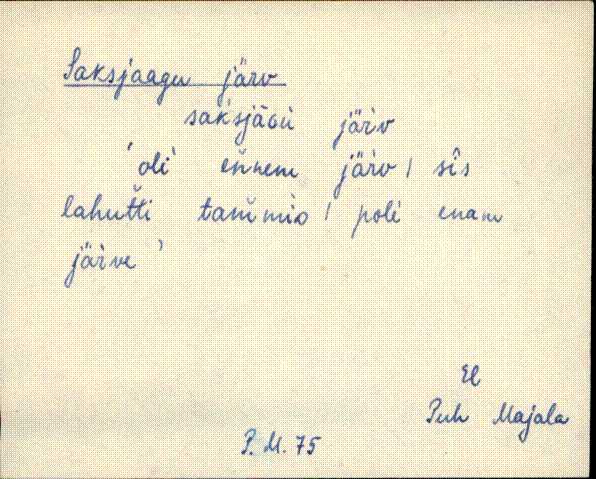 Saksjaagu järv
saksjāGu järv
'oli ennem järv / sîs
lahutti tammid / poli enam
järve'
El
Puh Majala
P. M. 75